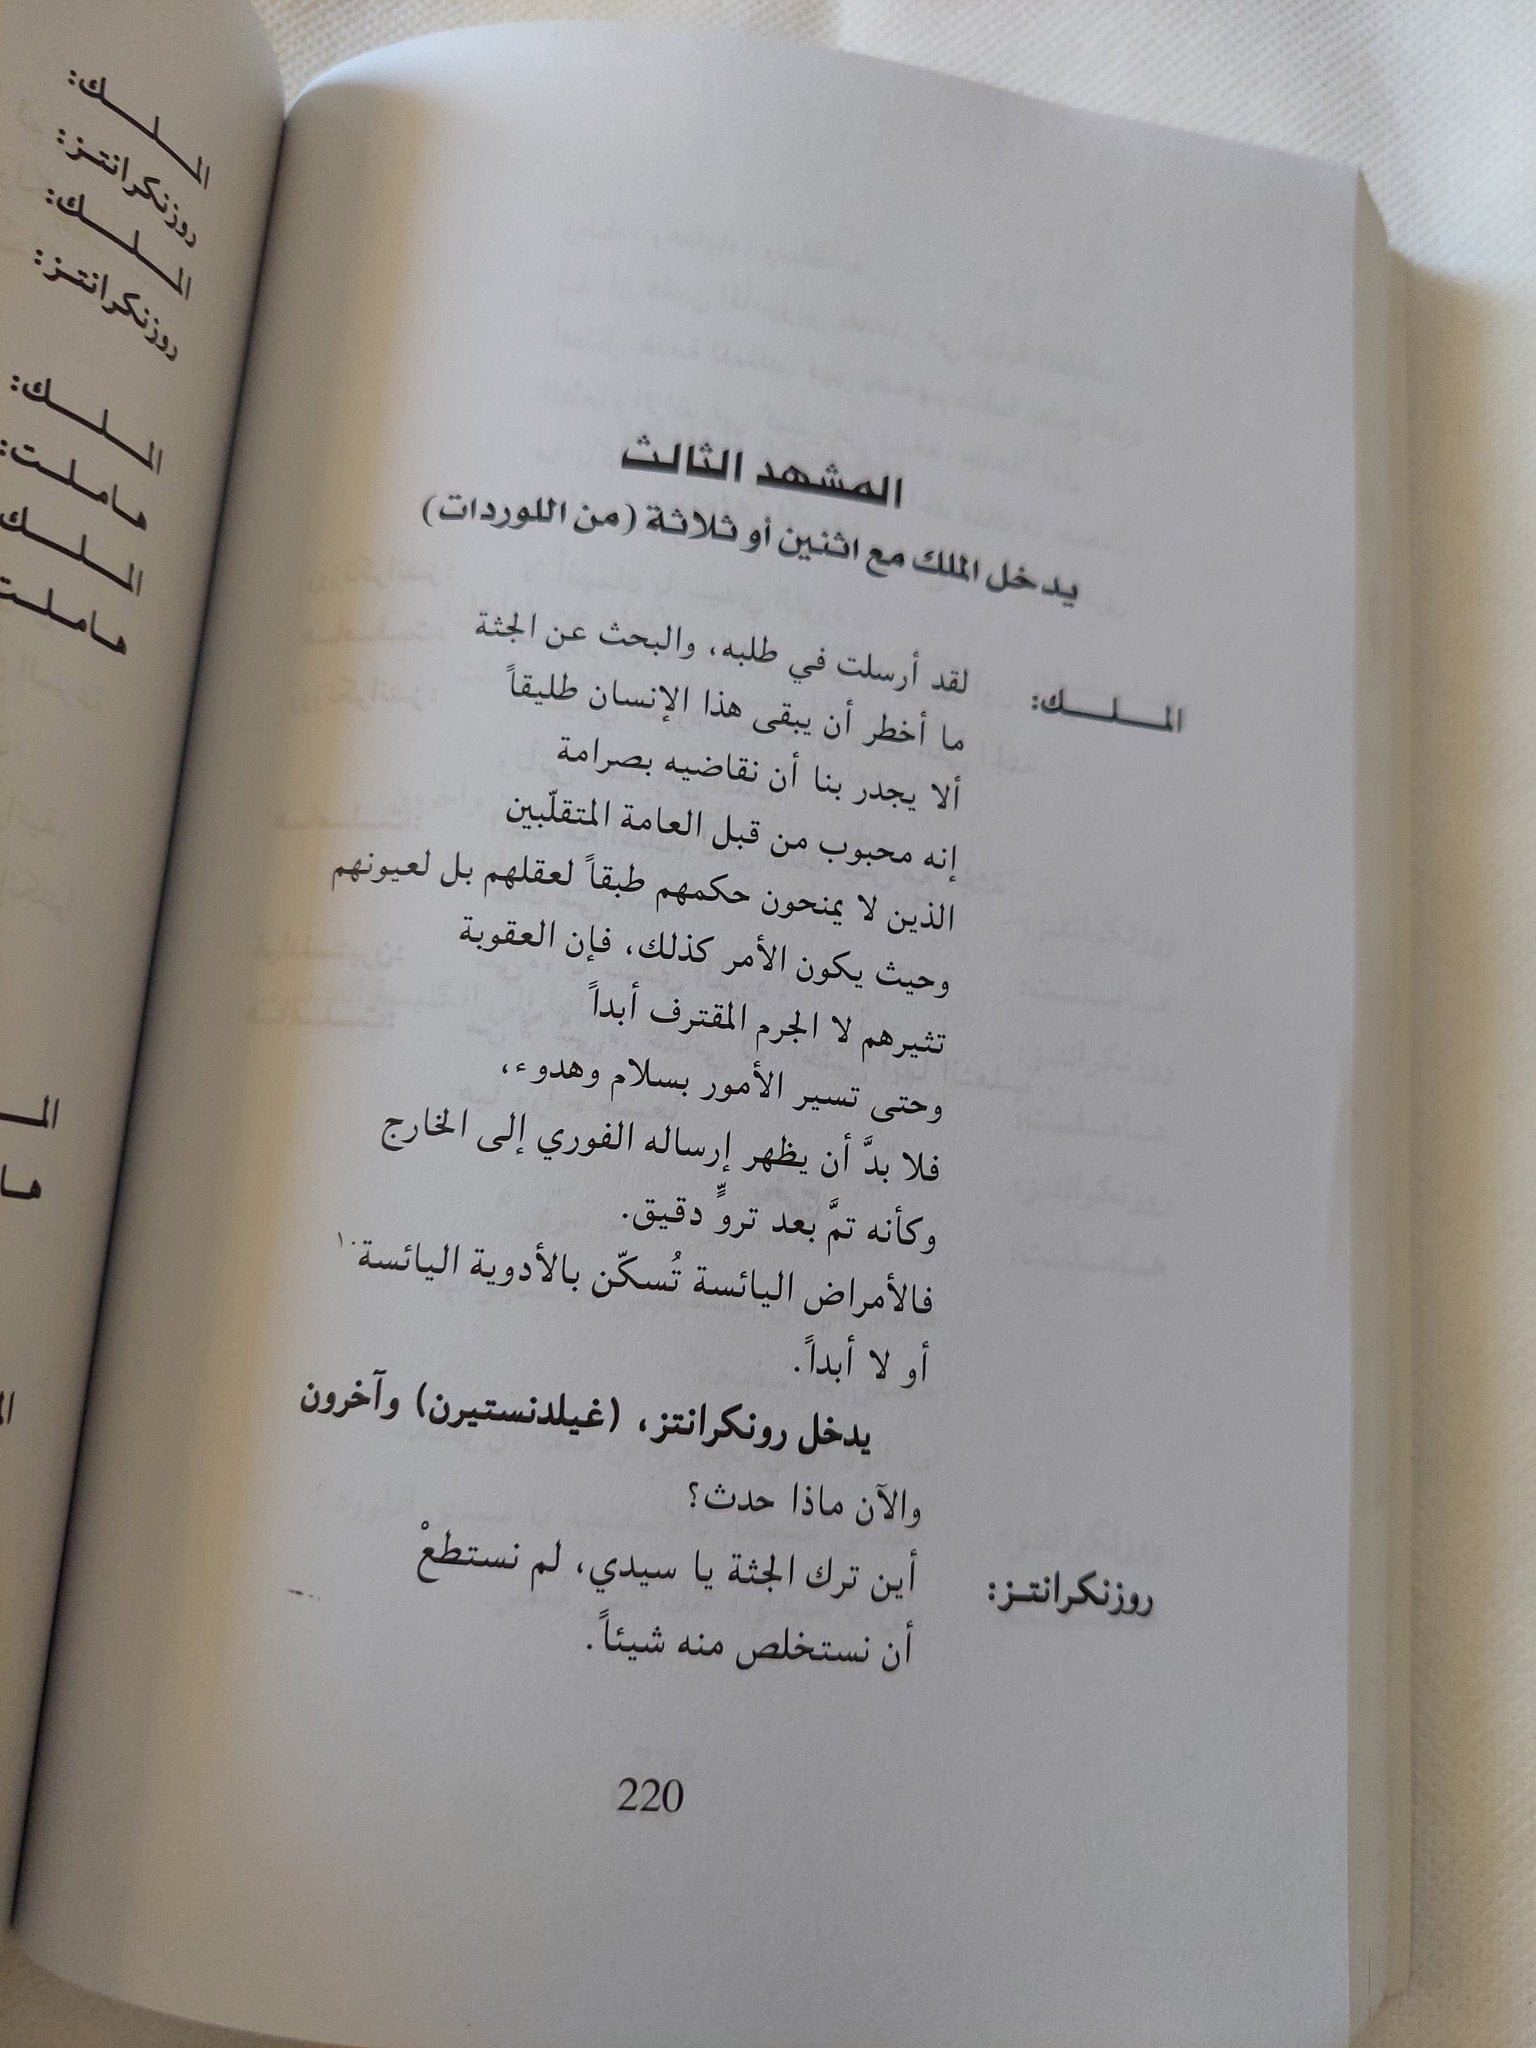 المشهد الثالث
يدخل الملك مع اثنين أو ثلاثة (من اللوردات)
الملك: لقد أرسلت في طلبه، والبحث عن الجثة
ما أخطر أن يبقى هذا الإنسان طليقاً
ألا يجدر بنا أن نقاضيه بصرامة
إنه محبوب من قبل العامة المتقلّبين
الذين لا يمنحون حكمهم طبقاً لعقلهم بل لعيونهم
وحيث يكون الأمر كذلك، فإن العقوبة
تثيرهم لا الجرم المقترف أبداً
وحتى تسير الأمور بسلام وهدوء،
فلا بدَّ أن يظهر إرساله الفوري إلى الخارج
وكأنه تمَّ بعد تروٍّ دقيق.
فالأمراض اليائسة تُسكّن بالأدوية اليائسة ١٠
أو لا أبداً.
يدخل رونكرانتز، (غيلدنستيرن) وآخرون
والآن ماذا حدث؟
روزنكرانتز: أين ترك الجثة يا سيدي، لم نستطعْ
أن نستخلص منه شيئاً.
220
الملك:
روزنكرانتز:
الملك:
روزنكرانتز:
الملك:
هاملت:
الملك: